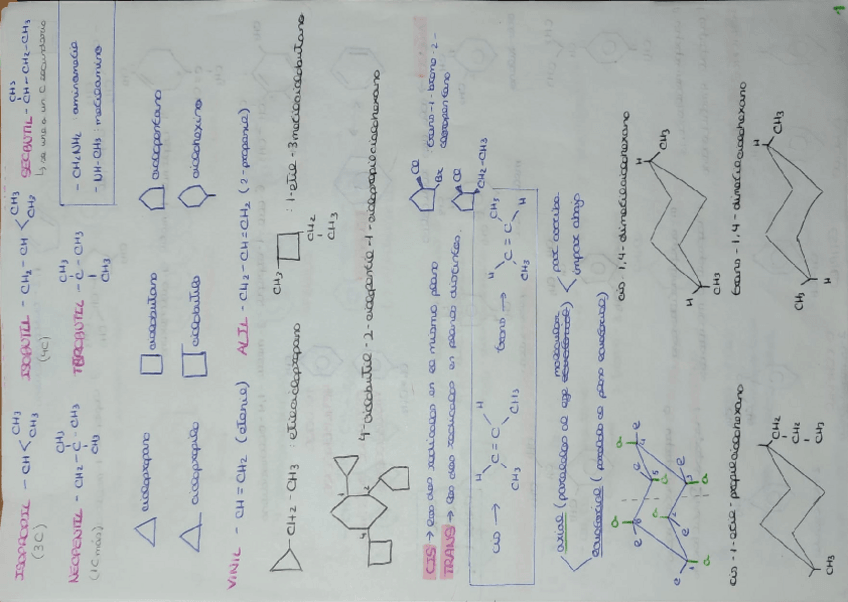 ISOPROPIL - CH CH3 CH3
(3C)
ISOBUTIL - CH2 - CH CH3 CH3
(4C)
SECBUTIL - CH - CH2 - CH3
CH3
↳ se une a un C secundario
NEOPENTIL - CH2 - C - CH3
CH3
CH3
(1C más)
TERCBUTIL - C - CH3
CH3
CH3
- CH2NH2 aminometil
- NH-CH3: metilamino
ciclopropano
ciclobutano
ciclopentano
ciclopropilo
ciclobutilo
ciclohexino
VINIL - CH=CH2 (etenil)
ALIL - CH2-CH=CH2 (2-propenil)
CH2-CH3 : etilciclopropano
CH3
CH2
CH3
: 1-etil-3metilciclobutano
1
2
4
4-ciclobutil-2-ciclopentil-1-ciclopropilciclohexano
CIS → los dos radicales en el mismo plano
TRANS → los dos radicales en planos distintos.
Br
trans-1-bromo-2-
CH2-CH3
cis →
H
H
C = C
CH3
CH3
trans →
H
CH3
C = C
CH3
H
axial (paralelos al eje molecular)
par arriba
impar abajo
ecuatorial (paralelo al plano ecuatorial)
cis-1-etil-propilciclohexano
CH2
CH2
CH3
CH3
cis-1,4-dimetilciclohexano
H
CH3
H
CH3
trans-1,4-dimetilciclohexano
H
CH3
CH3
H
1